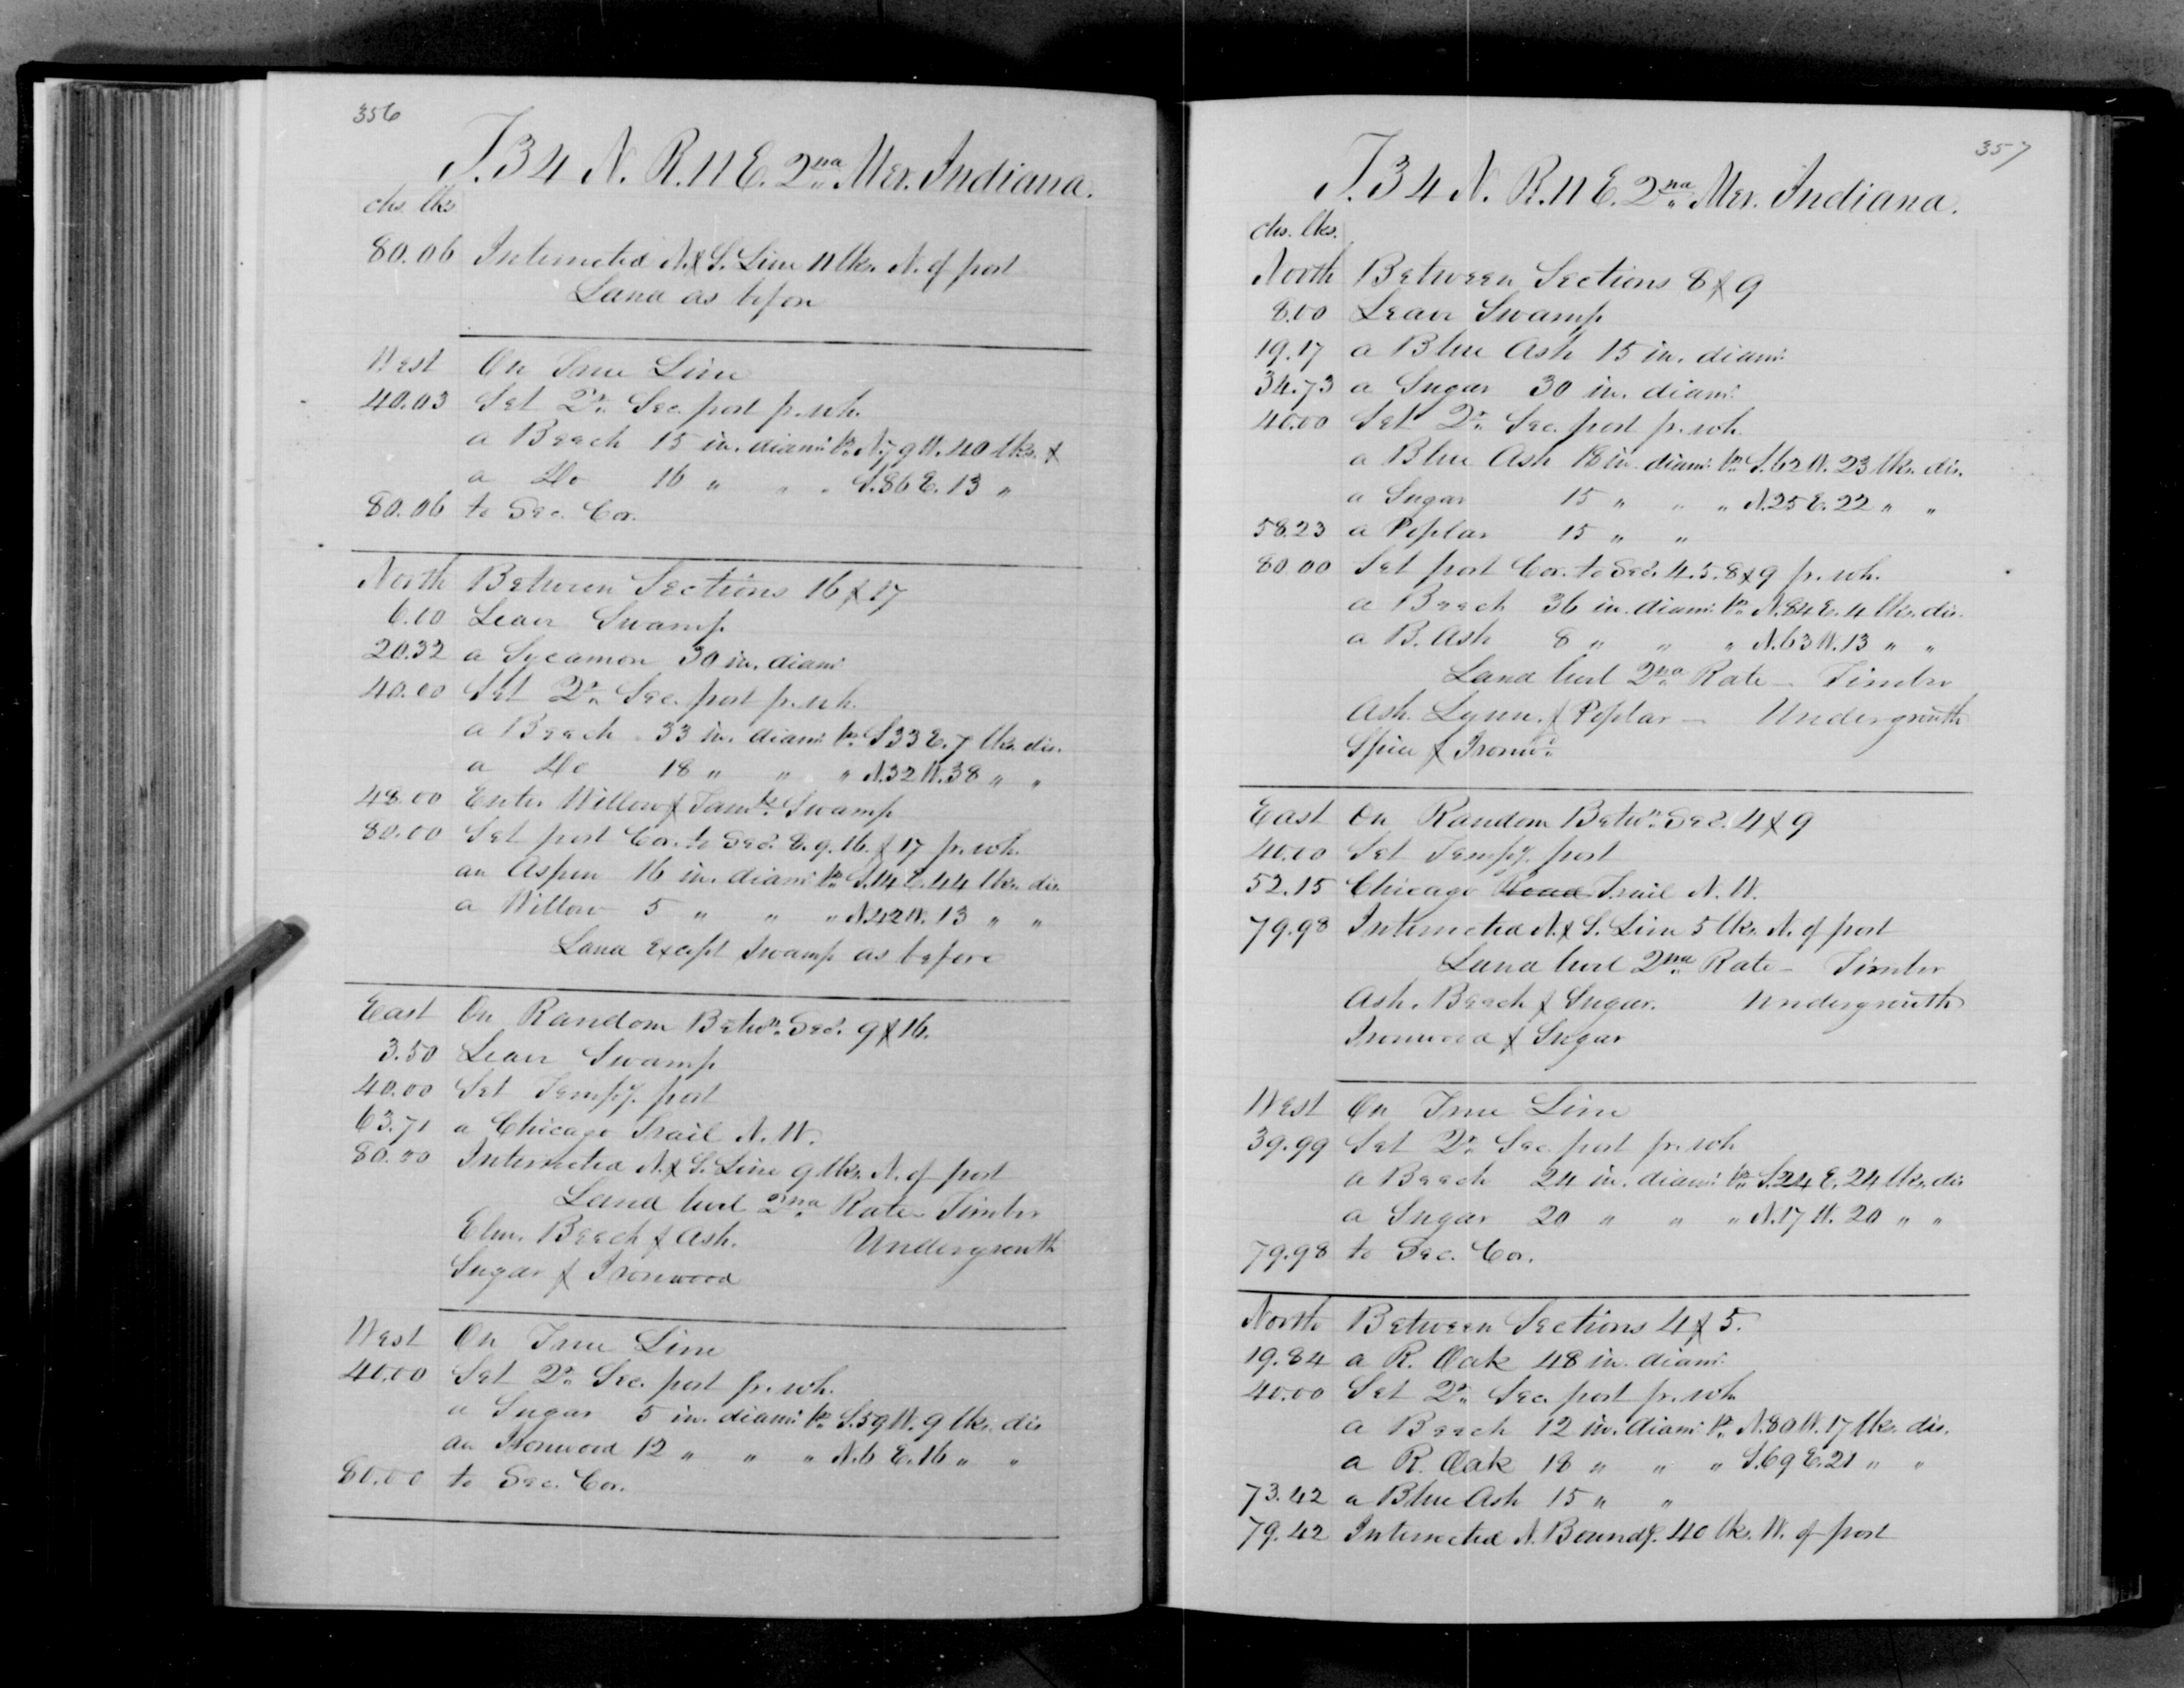 356
T. 34 N. R. 11 E. 2nd Mer. Indiana.
chs. lks.
80.06 Intersected N. & S. Line 11 lks. N. of post
Land as before
West On True Line
40.03 Set Qr. Sec. post fr. wh.
a Beech 15 in. diam. br. N. 79 W. 40 lks. &
a do 16 " " " S. 86 E. 13 "
80.06 to Sec. Cor.
North Between Sections 16 & 17
6.00 Leave Swamp
20.32 a Sycamore 30 in. diam.
40.00 Set Qr. Sec. post fr. wh.
a Beech 33 in. diam. br. S. 33 E. 7 lks. dis.
a do 18 " " " N. 32 W. 38 " "
48.00 Enter Willow & Tamk. Swamp
80.00 Set post Cor. to Secs. 8. 9. 16. & 17 fr. wh.
an Aspen 16 in. diam. br. S. 14 E. 44 lks. dis.
a Willow 5 " " " N. 42 W. 13 " "
Land except Swamp as before
East On Random Betwn. Secs. 9 & 16.
3.50 Leave Swamp
40.00 Set Tempy. post
63.71 a Chicago Trail N. W.
80.00 Intersected N. & S. Line 9 lks. N. of post
Land level 2nd Rate - Timber
Elm. Beech & Ash. Undergrowth
Sugar & Ironwood
West On True Line
40.00 Set Qr. Sec. post fr. wh.
a Sugar 5 in. diam. br. S. 59 W. 9 lks. dis
an Ironwood 12 " " " N. 6 E. 16 " "
80.00 to Sec. Cor.
357
T. 34 N. R. 11 E. 2nd Mer. Indiana.
chs. lks.
North Between Sections 8 & 9
8.00 Leave Swamp
19.17 a Blue Ash 15 in. diam.
34.73 a Sugar 30 in. diam.
40.00 Set Qr. Sec. post fr. wh.
a Blue Ash 18 in. diam. br. S. 62 W. 23 lks. dis.
a Sugar 15 " " " N. 25 E. 22 " "
58.23 a Poplar 15 " "
80.00 Set post Cor. to Secs. 4. 5. 8 & 9 fr. wh.
a Beech 36 in. diam. br. N. 84 E. 4 lks. dis.
a B. Ash 8 " " " N. 63 W. 13 " "
Land level 2nd Rate - Timber
Ash. Lynn. & Poplar - Undergrowth
Spice & Ironwd.
East On Random Betwn. Secs. 4 & 9
40.00 Set Tempy. post
52.15 Chicago Road Trail N. W.
79.98 Intersected N. & S. Line 5 lks. N. of post
Land level 2nd Rate - Timber
Ash. Beech & Sugar. Undergrowth
Ironwood & Sugar
West On True Line
39.99 Set Qr. Sec. post fr. wh.
a Beech 24 in. diam. br. S. 24 E. 24 lks. dis
a Sugar 20 " " " N. 17 W. 20 " "
79.98 to Sec. Cor.
North Between Sections 4 & 5.
19.84 a R. Oak 48 in. diam.
40.00 Set Qr. Sec. post fr. wh.
a Beech 12 in. diam. br. N. 80 W. 17 lks. dis.
a R. Oak 18 " " " S. 69 E. 21 " "
73.42 a Blue Ash 15 " "
79.42 Intersected N. Boundy. 40 lks. W. of post